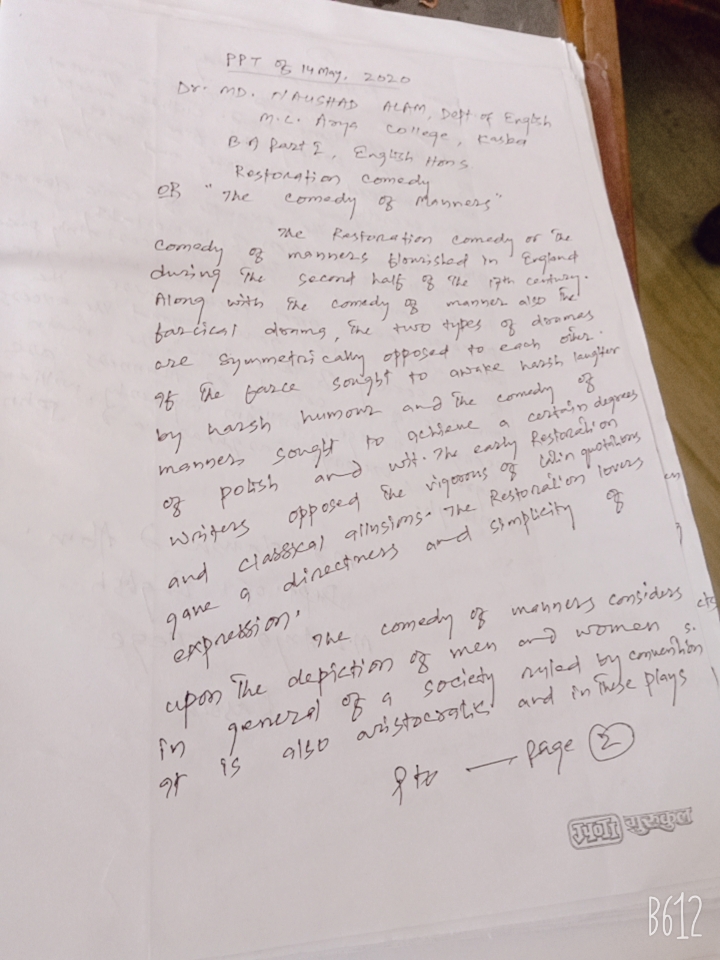 PPT of 14 May, 2020
Dr. MD. NAUSHAD ALAM, Dept of English
M.C. Arya College, Kasba
B A Part I, English Hons
Restoration Comedy
OR "The Comedy of Manners"
The Restoration Comedy or The
Comedy of manners flourished in England
during the second half of the 17th century.
Along with the comedy of manner also the
farcical drama, the two types of dramas
are symmetrically opposed to each other.
If the farce sought to awake harsh laughter
by harsh humour and the comedy of
manners sought to achieve a certain degrees
of polish and wit. The early Restoration
writers opposed the vigorous of latin quotations
and classical allusions. The Restoration lovers
gave a directness and simplicity of
expression.
The comedy of manners considers
upon the depiction of men and women
in general of a society ruled by convention
It is also aristocratic and in these plays
Pto — Page 2
JYOTI गुरुकुल
B612